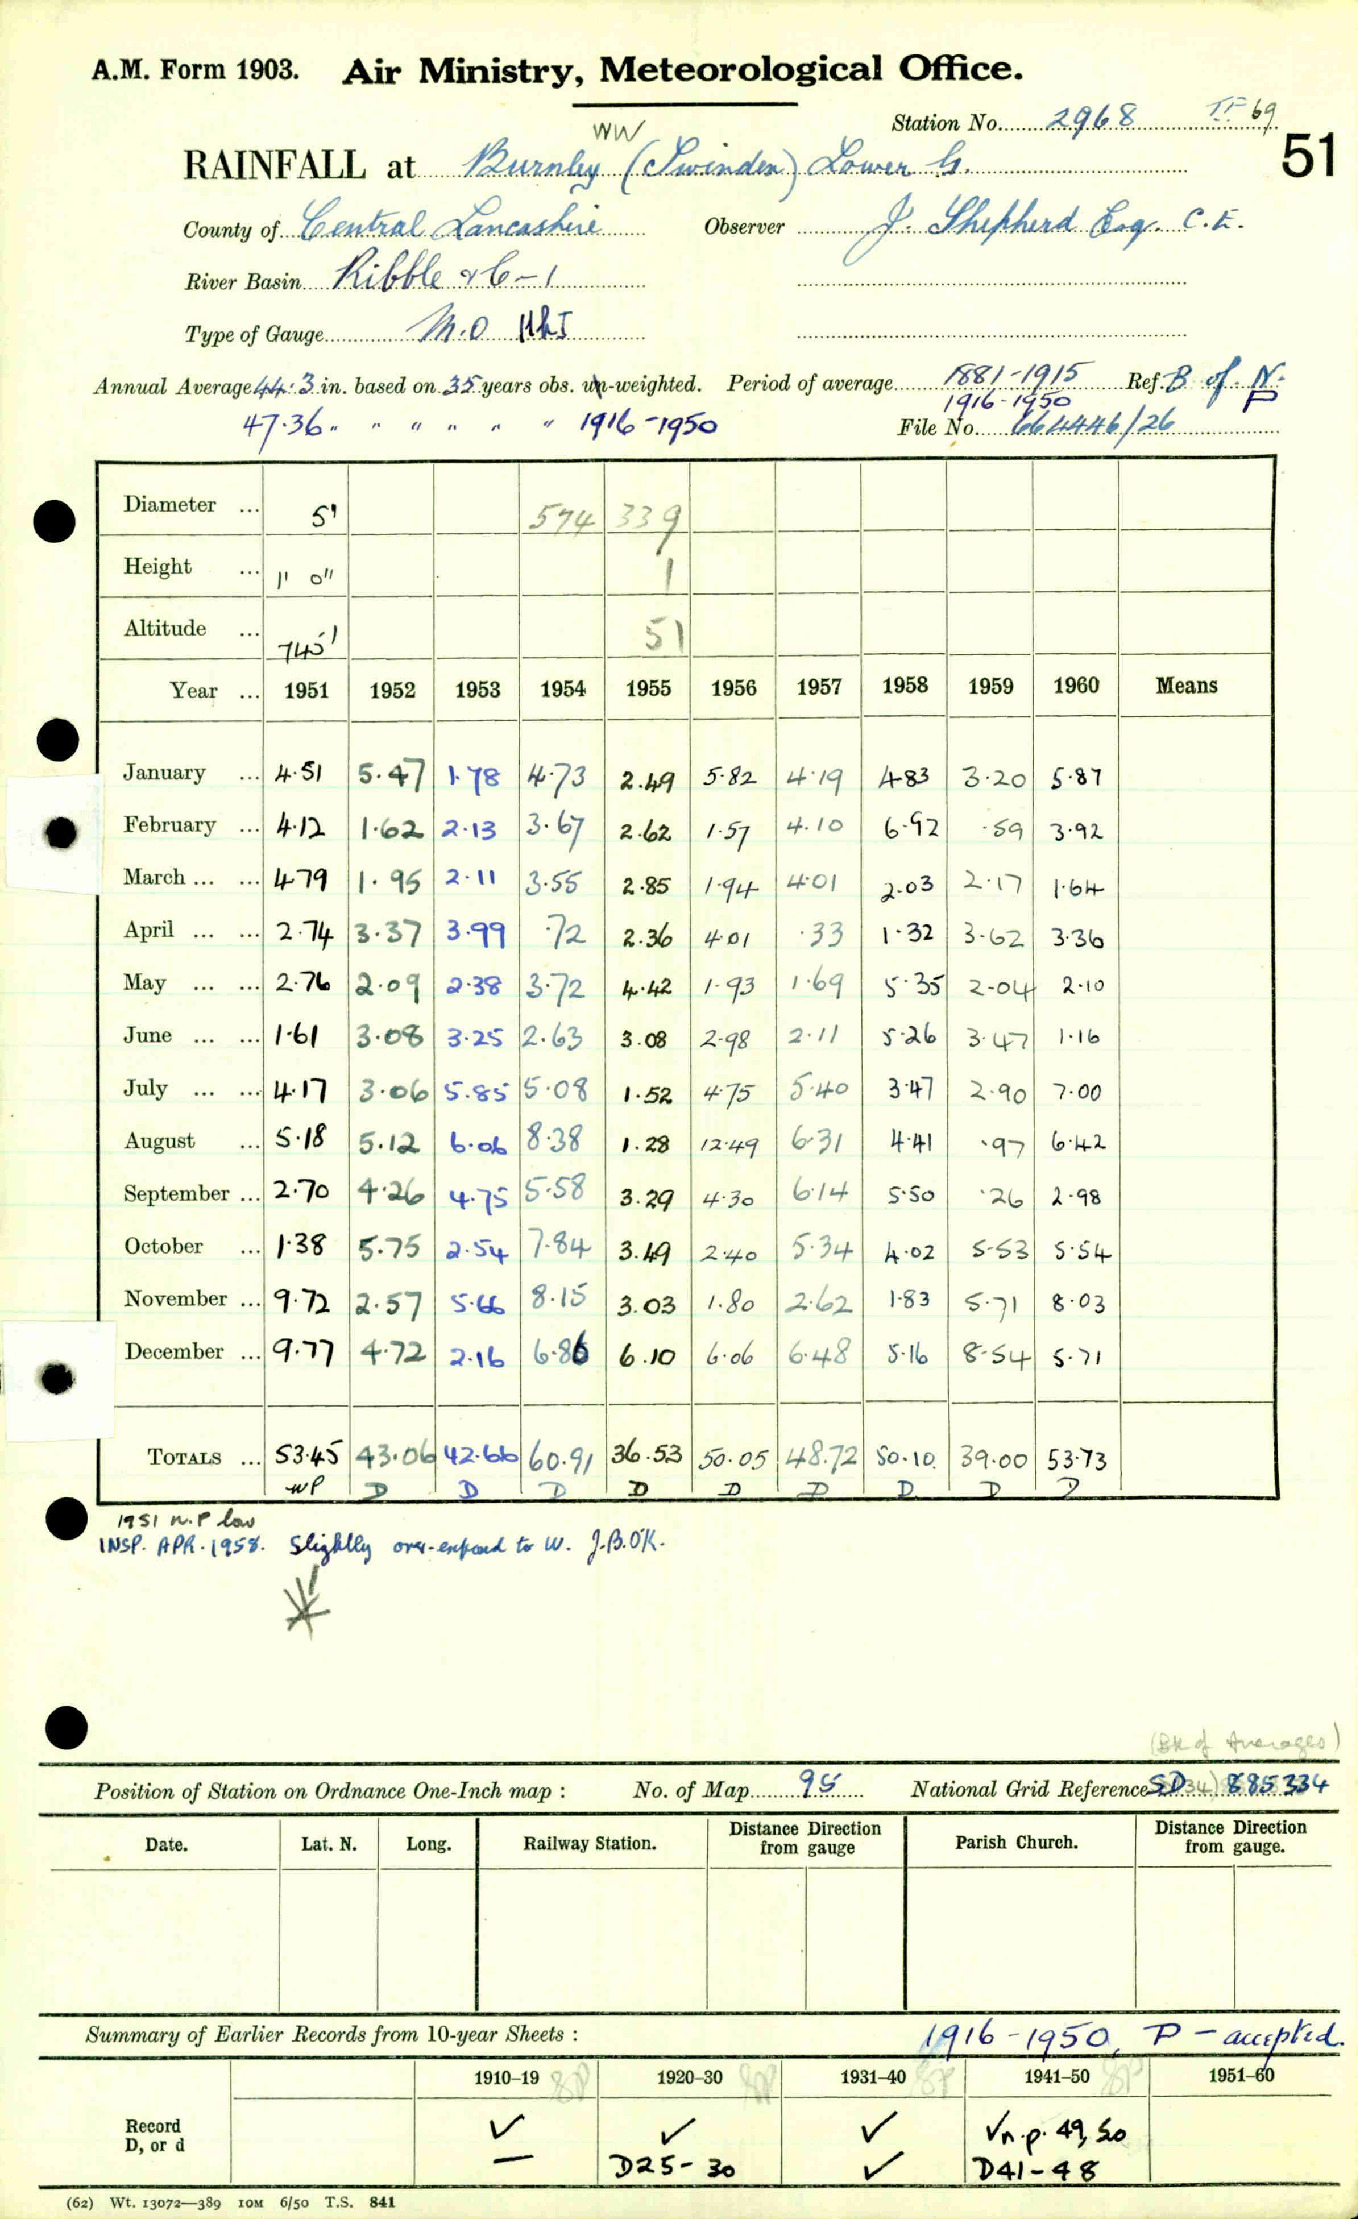 A.M. Form 1903. Air Ministry, Meteorological Office.
Station No. 2968 69
51
WW
RAINFALL at Burnley (Swinden) Lower G.
County of Central Lancashire Observer J. Shepherd Esq. C.E.
River Basin Ribble & C-1
Type of Gauge M.O
Annual Average 44.3 in. based on 35 years obs. un-weighted. Period of average 1881-1915 Ref. B of N.
1916-1950 P
47.36 " " " " " " 1916-1950 File No. 664446/26
Diameter ... 5" 574 339
Height ... 1' 0" 1
Altitude ... 745' 51
Year ... 1951 1952 1953 1954 1955 1956 1957 1958 1959 1960 Means
January ... 4.51 5.47 1.78 4.73 2.49 5.82 4.19 4.83 3.20 5.87
February ... 4.12 1.62 2.13 3.67 2.62 1.57 4.10 6.92 .59 3.92
March ... ... 4.79 1.95 2.11 3.55 2.85 1.94 4.01 2.03 2.17 1.64
April ... ... 2.74 3.37 3.99 .72 2.36 4.01 .33 1.32 3.62 3.36
May ... ... 2.76 2.09 2.38 3.72 4.42 1.93 1.69 5.35 2.04 2.10
June ... ... 1.61 3.08 3.25 2.63 3.08 2.98 2.11 5.26 3.47 1.16
July ... ... 4.17 3.06 5.85 5.08 1.52 4.75 5.40 3.47 2.90 7.00
August ... 5.18 5.12 6.06 8.38 1.28 12.49 6.31 4.41 .97 6.42
September ... 2.70 4.26 4.75 5.58 3.29 4.30 6.14 5.50 .26 2.98
October ... 1.38 5.75 2.54 7.84 3.49 2.40 5.34 4.02 5.53 5.54
November ... 9.72 2.57 5.66 8.15 3.03 1.80 2.62 1.83 5.71 8.03
December ... 9.77 4.72 2.16 6.86 6.10 6.06 6.48 5.16 8.54 5.71
TOTALS ... 53.45 43.06 42.66 60.91 36.53 50.05 48.72 50.10 39.00 53.73
NP D D D D D D D D D
1951 N.P low
INSP. APR. 1958. Slightly over-exposed to W. J.B.O'K.
(Bk of Averages)
Position of Station on Ordnance One-Inch map : No. of Map 95 National Grid Reference SD (34) 885334
Date. Lat. N. Long. Railway Station. Distance Direction from gauge Parish Church. Distance Direction from gauge.
Summary of Earlier Records from 10-year Sheets : 1916-1950, P - accepted.
1910–19 1920–30 1931–40 1941–50 1951–60
Record ✓ ✓ ✓ ✓ n.p. 49, 50
D, or d — D25-30 ✓ D41-48
(62) Wt. 13072—389 10M 6/50 T.S. 841